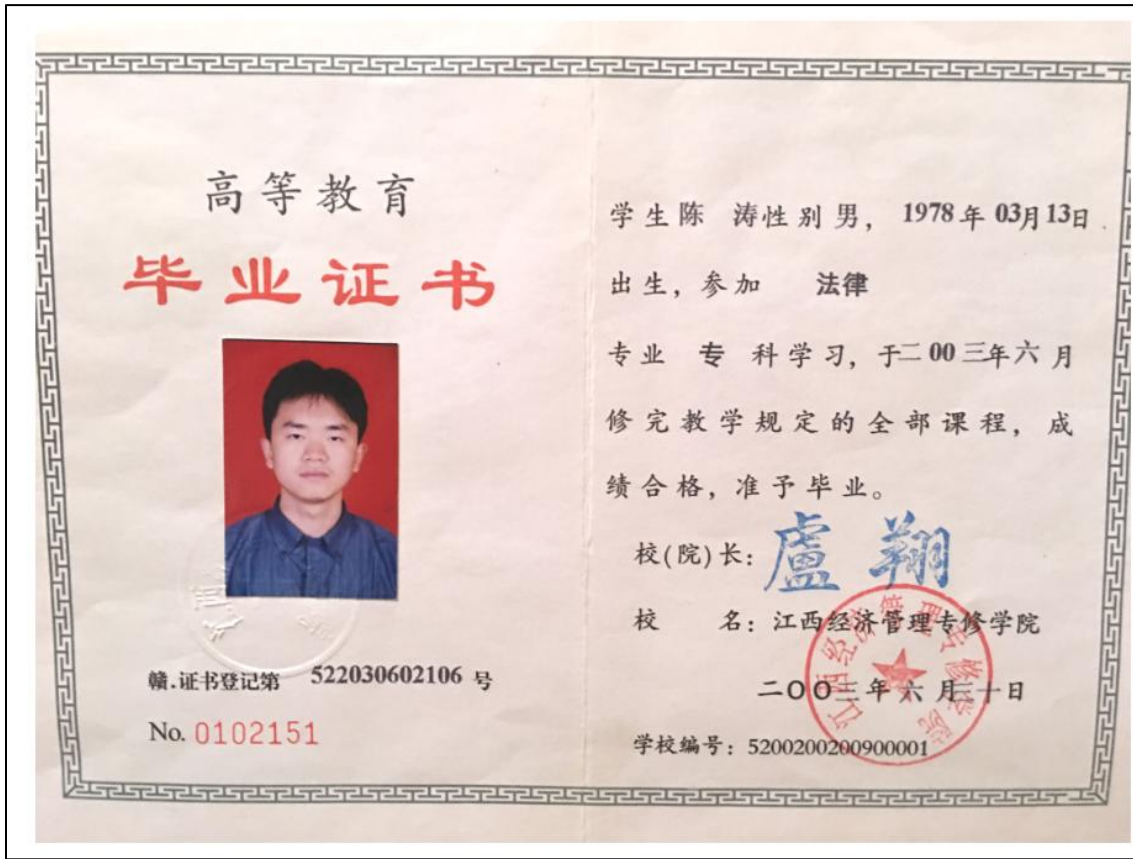 高等教育
毕业证书
赣.证书登记第 522030602106 号
No. 0102151
学生陈 涛性别男，1978年03月13日
出生，参加 法律
专业 专 科学习，于二00三年六月
修完教学规定的全部课程，成
绩合格，准予毕业。
校(院)长：盧翔
校 名：江西经济管理专修学院
二〇〇三年六月三十日
学校编号：5200200200900001
江西经济管理专修学院